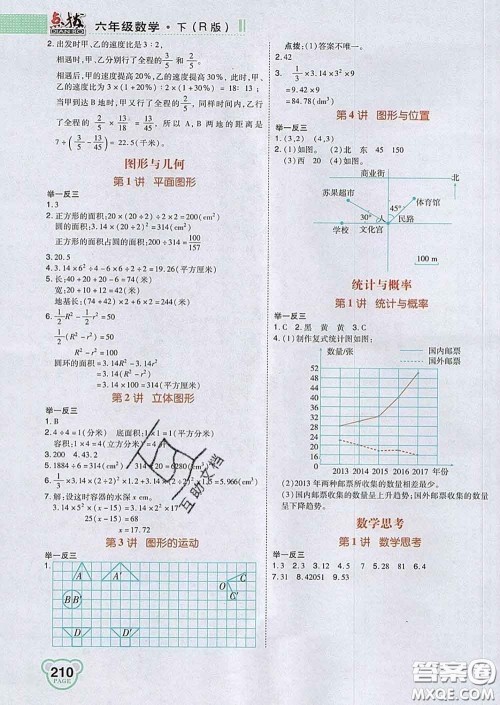 点拨
DIAN BO
六年级数学·下(R版)
2.出发时甲、乙的速度比是3:2,
相遇时,甲、乙分别行了全程的3/5和2/5。
相遇后甲的速度提高20%,乙的速度提高30%,甲、
乙的速度比为3×(1+20%):2×(1+30%)=18:13;
当甲到达B地时,甲又行了全程的2/5,同样时间内,乙行
了全程的2/5×13/18=13/45,所以A、B两地的距离是
7÷(3/5-13/45)=22.5(千米)。
图形与几何
第1讲 平面图形
举一反三
1.3
2.正方形的面积:20×(20÷2)÷2×2=200(cm²)
圆的面积:3.14×(20÷2)²=314(cm²)
正方形的面积占圆的面积:200÷314=100/157
3.20.5
4.3.14×6²÷4-6×6÷2+9=19.26(平方厘米)
5.长:40+20÷2+24=74(米)
宽:20+10+12=42(米)
地基长:(74+42)×2+24×6=376(米)
6.1/2R²-1/2r²=50
R²-r²=100
圆环的面积=3.14R²-3.14r²
=3.14×100=314(平方厘米)
第2讲 立体图形
举一反三
1.B
2.4÷4=1(分米) 底面积:1×1=1(平方分米)
容积:1×4=4(立方分米)
3.200 4.43.2
6.1/3×3.14×(2÷2)²×1.2+3.14×(2÷2)²×1.5=5.966(cm³)
7.解:设这时容器的水深x cm。
25(x-15)=68
x=17.72
第3讲 图形的运动
举一反三
1.
A A′
B B′
C C′
O
D D′
210
PAGE
点拨:(1)答案不唯一。
3. 1/3×3.14×3²×9
=9.42×9
=84.78(dm³)
第4讲 图形与位置
举一反三
1.(3,2) (4,3)
2.(1)如图。 (2)北 东 45 150
(3)西 北 60 200
商业街
北
苏果超市
体育馆
30°
45°
人
民路
学校
文化宫
100 m
统计与概率
第1讲 统计与概率
举一反三
1.C 2.黑 黄 黄 3.C
4.(1)制作复式统计图如图:
数量/张
国内邮票
国外邮票
52
48
44
40
36
32
28
24
20
16
12
8
4
0
2013 2014 2015 2016 2017 年份
(2)2013年两种邮票所收集的数量最接近。
(3)国内邮票收集的数量呈上升趋势;国外邮票收集的数量
呈下降趋势。
数学思考
第1讲 数学思考
举一反三
7.31 8.42051 9.53
互助文档
答案圈
MXQE.COM